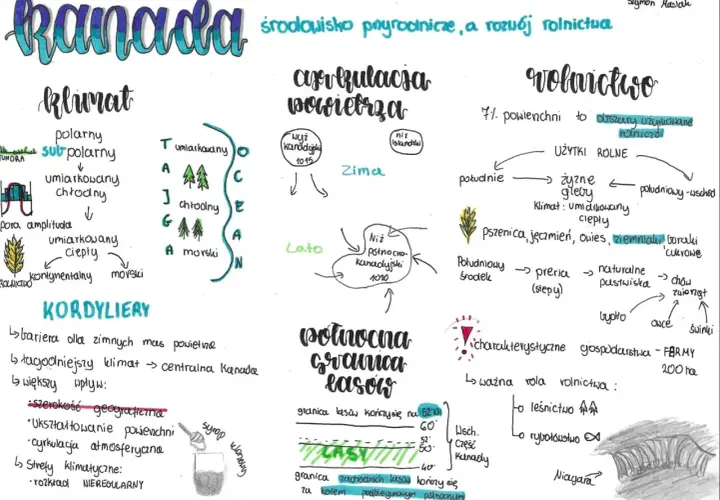 Kanada
środowisko przyrodnicze, a rozwój rolnictwa
Szymon
klimat
polarny
subpolarny
TUNDRA
umiarkowany
chłodny
spora amplituda
umiarkowany
ciepły
kontynentalny
morski
TAJGA
umiarkowany
chłodny
morski
OCEAN
KORDYLIERY
↳ bariera dla zimnych mas powietrza
↳ łagodniejszy klimat → centralna Kanada
↳ większy wpływ:
• szerokość geograficzna
• ukształtowanie powierzchni
• cyrkulacja atmosferyczna
↳ Strefy klimatyczne:
• rozkład NIEREGULARNY
syrop klonowy
cyrkulacja
powietrza
wyż
kanadyjski
1015
niż
islandzki
zima
lato
Niż
północno-
kanadyjski
1010
północna
granica
lasów
granica lasów kończy się na 52°N
60°
52°
50°
LASY
40°
Wsch.
Część
Kanady
granica zachodnich lasów kończy się
za kołem podbiegunowym północnym
rolnictwo
7% powierzchni to obszary użytkowane
rolniczo
UŻYTKI ROLNE
południe
żyzne
gleby
południowy-wschód
klimat: umiarkowany
ciepły
pszenica, jęczmień, owies, ziemniaki, buraki
cukrowe
Południowy
środek
→ preria
(stepy)
→ naturalne
pastwiska
→ chów
zwierząt
bydło
owce
świnki
! charakterystyczne gospodarstwa - FARMY
200 ha
↳ ważna rola rolnictwa:
leśnictwo
rybołówstwo
Niagara